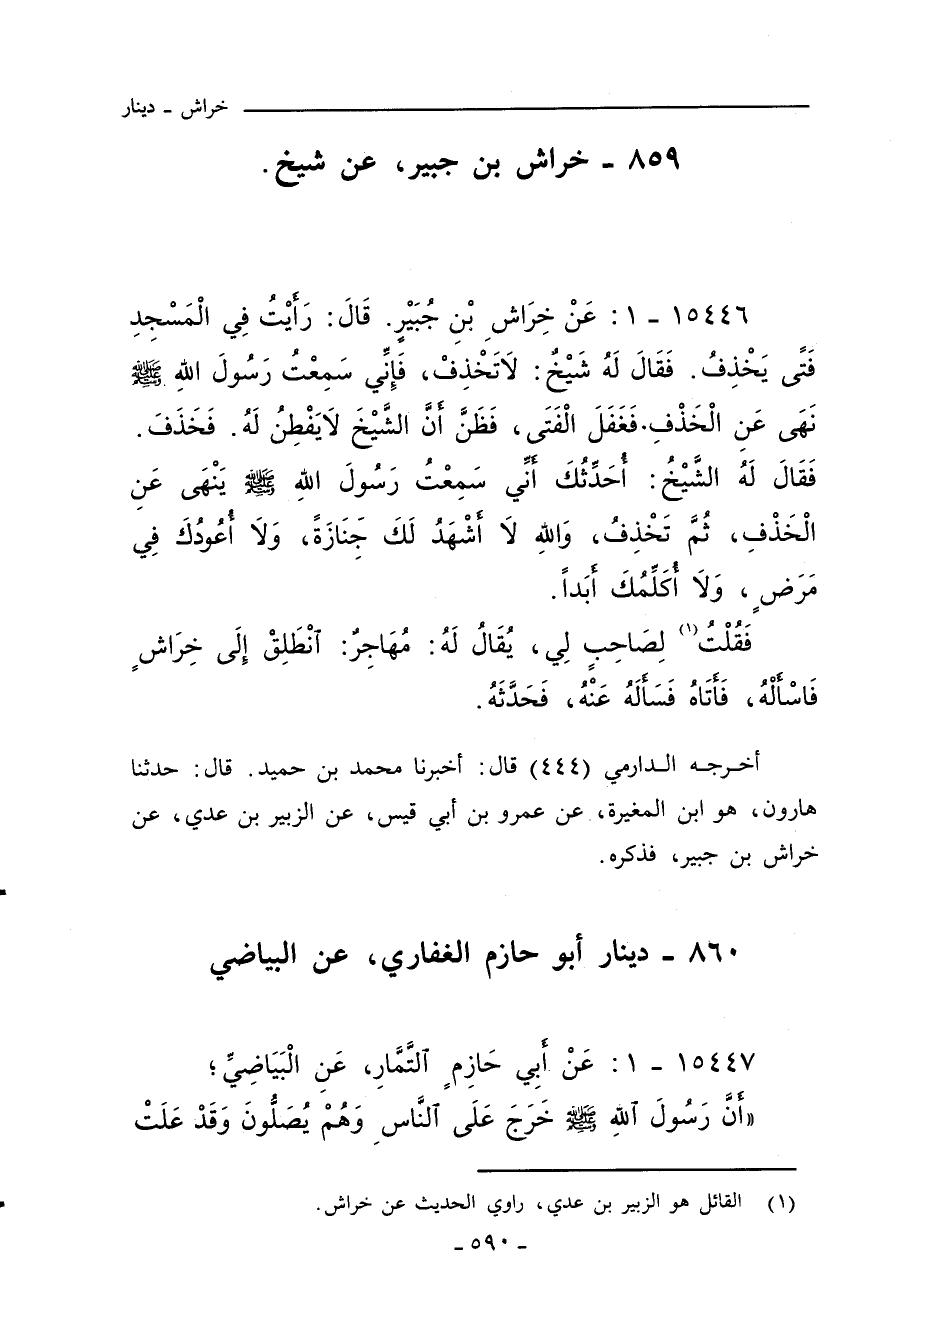 خراش ـ دينار
٨٥٩ ـ خراش بن جبير، عن شيخ .
١٥٤٤٦ ـ ١ : عَنْ خِرَاشِ بْنِ جُبَيْرٍ. قَالَ: رَأَيْتُ فِي الْمَسْجِدِ
فَتًى يَخْذِفُ. فَقَالَ لَهُ شَيْخٌ: لاَتَخْذِفْ، فَإِنِّي سَمِعْتُ رَسُولَ اللهِ ﷺ
نَهَى عَنِ الْخَذْفِ. فَغَفَلَ الْفَتَى، فَظَنَّ أَنَّ الشَّيْخَ لاَيَفْطِنُ لَهُ. فَخَذَفَ.
فَقَالَ لَهُ الشَّيْخُ: أُحَدِّثُكَ أَنِّي سَمِعْتُ رَسُولَ اللهِ ﷺ يَنْهَى عَنِ
الْخَذْفِ، ثُمَّ تَخْذِفُ، وَاللهِ لاَ أَشْهَدُ لَكَ جَنَازَةً، وَلاَ أَعُودُكَ فِي
مَرَضٍ، وَلاَ أُكَلِّمُكَ أَبَداً.
فَقُلْتُ(١) لِصَاحِبٍ لِي، يُقَالُ لَهُ: مُهَاجِرٌ: ٱنْطَلِقْ إِلَى خِرَاشٍ
فَاسْأَلْهُ، فَأَتَاهُ فَسَأَلَهُ عَنْهُ، فَحَدَّثَهُ.
أخرجه الدارمي (٤٤٤) قال: أخبرنا محمد بن حميد. قال: حدثنا
هارون، هو ابن المغيرة، عن عمرو بن أبي قيس، عن الزبير بن عدي، عن
خراش بن جبير، فذكره.
٨٦٠ ـ دينار أبو حازم الغفاري، عن البياضي
١٥٤٤٧ ـ ١ : عَنْ أَبِي حَازِمٍ ٱلتَّمَّارِ، عَنِ الْبَيَاضِيِّ؛
«أَنَّ رَسُولَ ٱللهِ ﷺ خَرَجَ عَلَى ٱلنَّاسِ وَهُمْ يُصَلُّونَ وَقَدْ عَلَتْ
(١) القائل هو الزبير بن عدي، راوي الحديث عن خراش.
ـ ٥٩٠ ـ